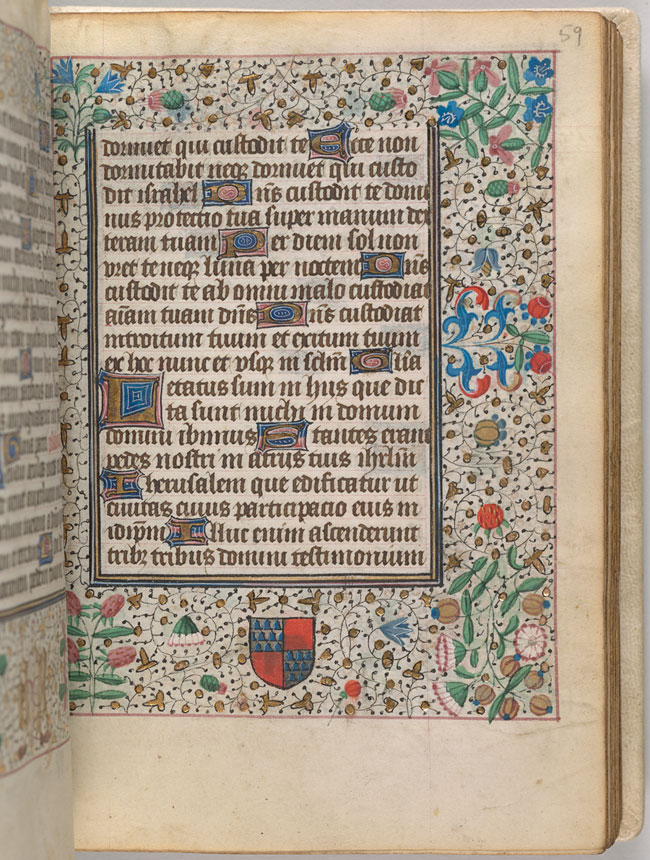 59
dormiet qui custodit te Ecce non
dormitabit neqꝫ dormiet qui custo
dit israhel Dn̄s custodit te domi
nus protectio tua super manum dex
teram tuam Per diem sol non
vret te neqꝫ luna per noctem Dn̄s
custodit te ab omni malo custodiat
aīam tuam dn̄s Dn̄s custodiat
introitum tuum et exitum tuum
ex hoc nunc et vsqꝫ in sclm̄ Glīa
Letatus sum in hiis que dic
ta sunt michi in domum
domini ibimus Stantes erant
pedes nostri in atriis tuis ihrlm̄
Iherusalem que edificatur ut
ciuitas cuius participacio eius in
idipm̄ Illuc enim ascenderunt
tribꝫ tribus domini testimonium